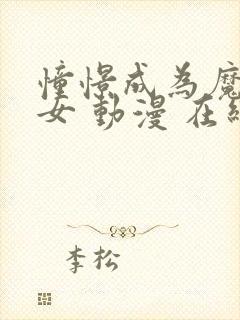 憧憬成為魔
女 動漫 在線
李松